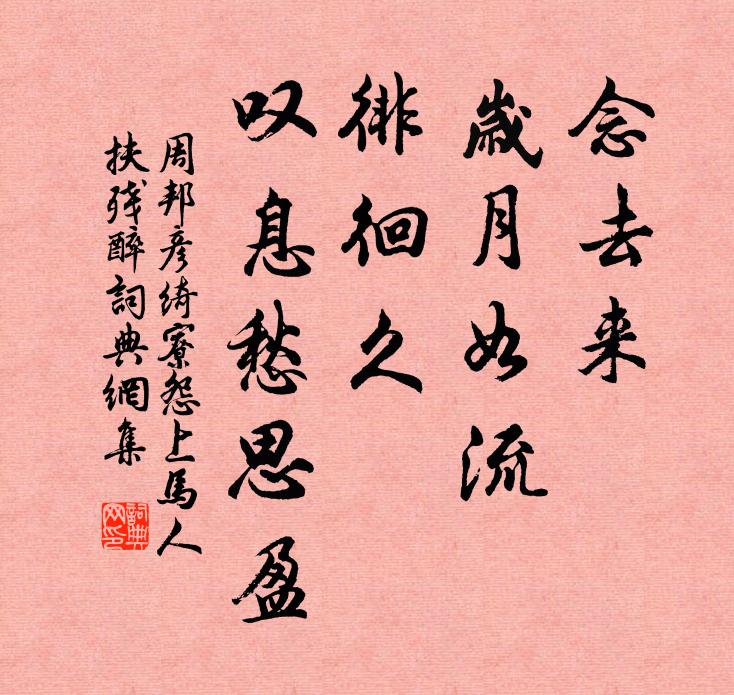 念去来
歲月如流
徘徊久
叹息愁思盈
周邦彦绮寮怨上馬人
扶残醉詞典網集
詞典
网印